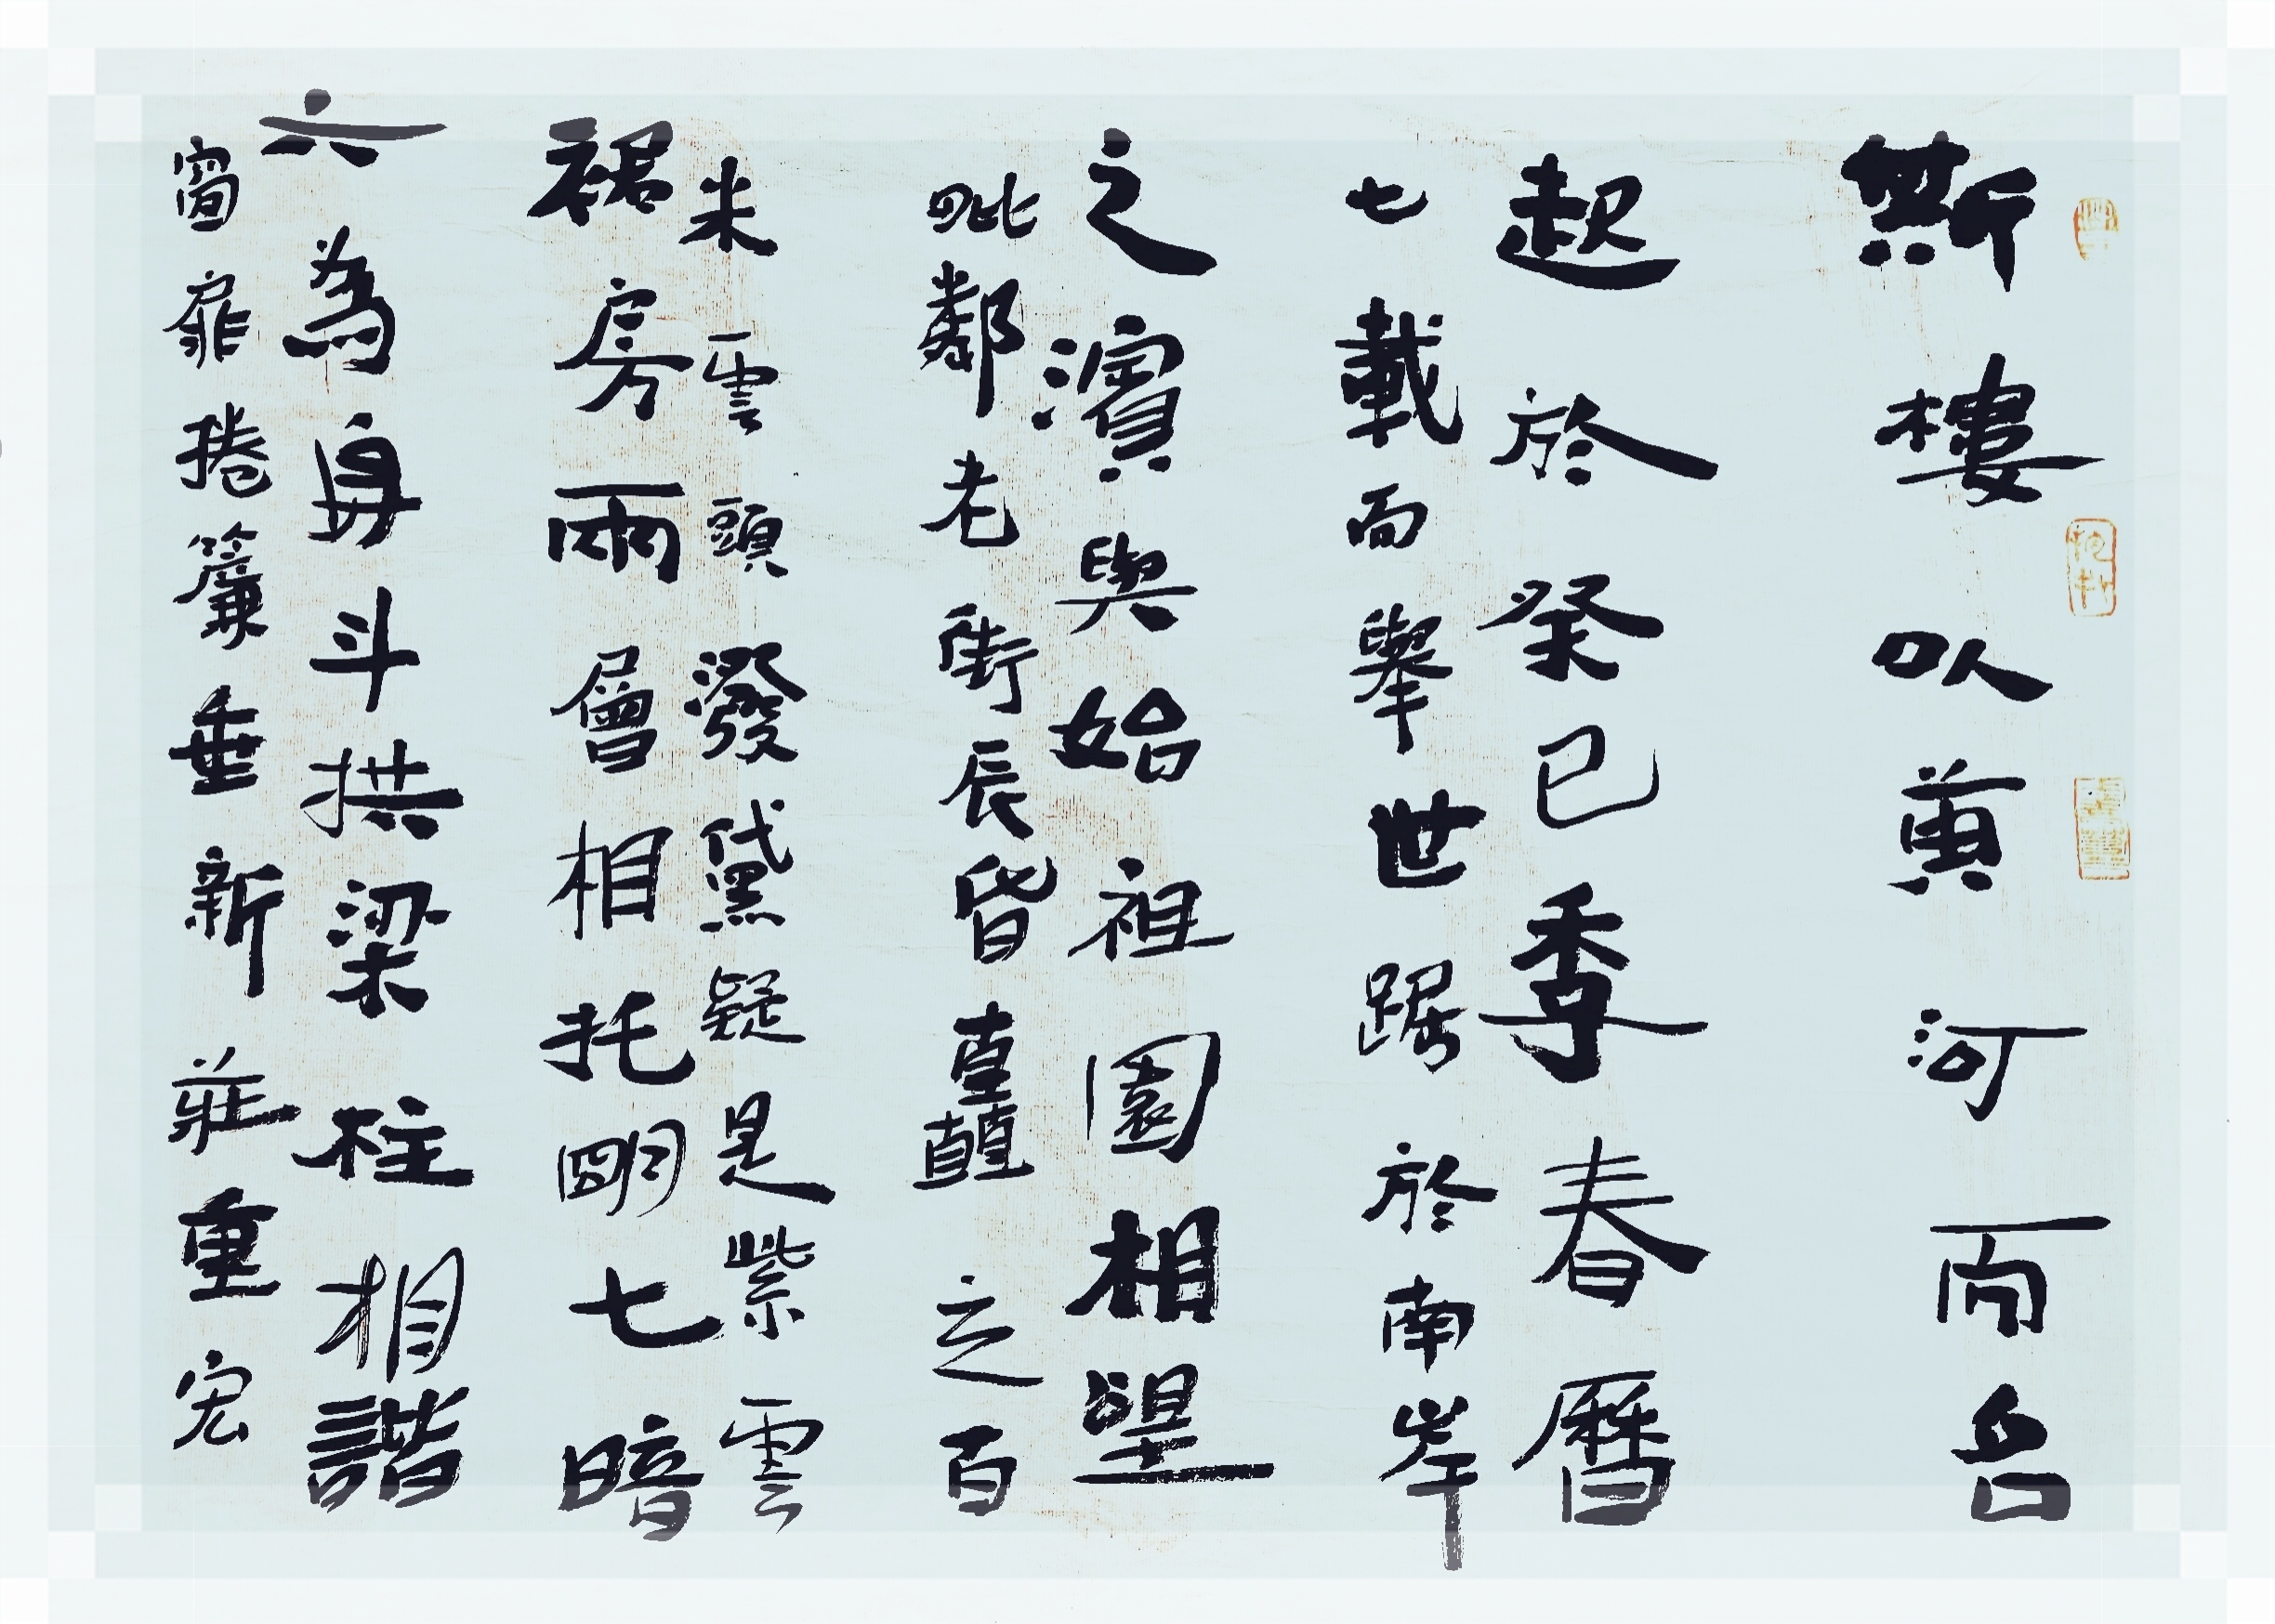 斯樓以黃河而名
起於癸巳季春曆
七載而舉世踞於南岸
之濱與始祖園相望
毗鄰老街辰昏矗之百
米雲頭潑黛疑是紫雲
裙房兩層相托明七暗
六為身斗拱梁柱相諧
窗扉捲簾垂新莊重宏